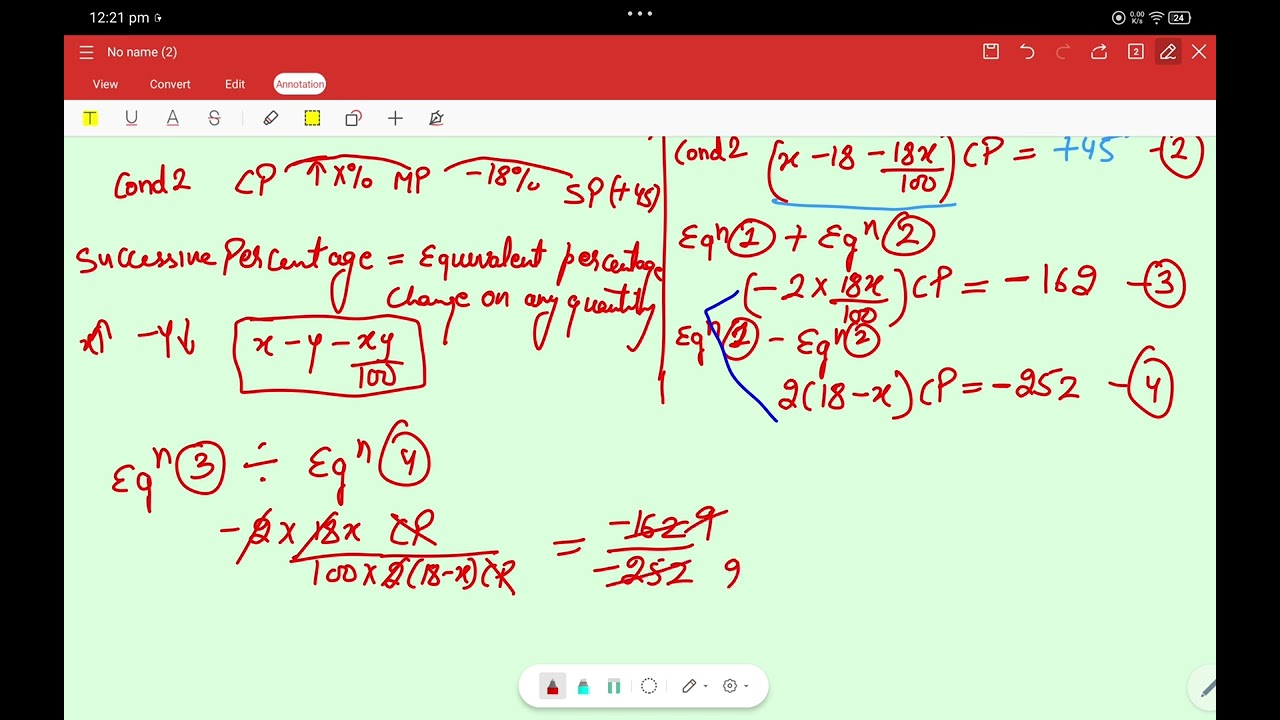 12:21 pm
0.00
K/s
24
No name (2)
2
View Convert Edit Annotation
T U A S
Cond 2 CP ↑x% MP -18% SP (+45)
Successive Percentage = Equivalent percentage
change on any quantity
x↑ -y↓ x - y - xy/100
Cond 2 (x - 18 - 18x/100) CP = +45 - ②
Eqⁿ ① + Eqⁿ ②
(-2 × 18x/100) CP = -162 - ③
Eqⁿ ① - Eqⁿ ②
2(18-x) CP = -252 - ④
Eqⁿ ③ ÷ Eqⁿ ④
-2 × 18x CP / 100 × 2(18-x) CP = -162 9 / -252 9